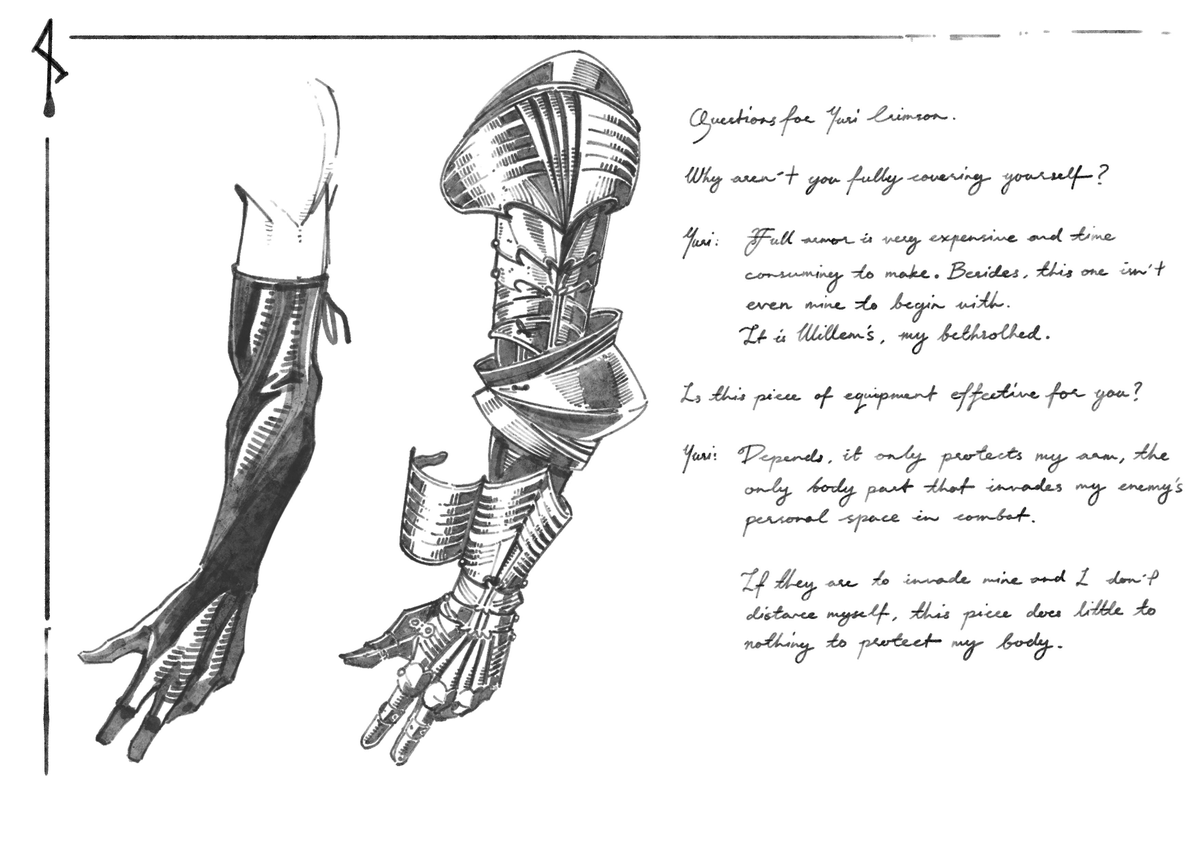 Questions for Yuri Crimson.
Why aren't you fully covering yourself?
Yuri: Full armor is very expensive and time
consuming to make. Besides, this one isn't
even mine to begin with.
It is Willem's, my bethrolhed.
Is this piece of equipment effective for you?
Yuri: Depends, it only protects my arm, the
only body part that invades my enemy's
personal space in combat.
If they are to invade mine and I don't
distance myself, this piece does little to
nothing to protect my body.